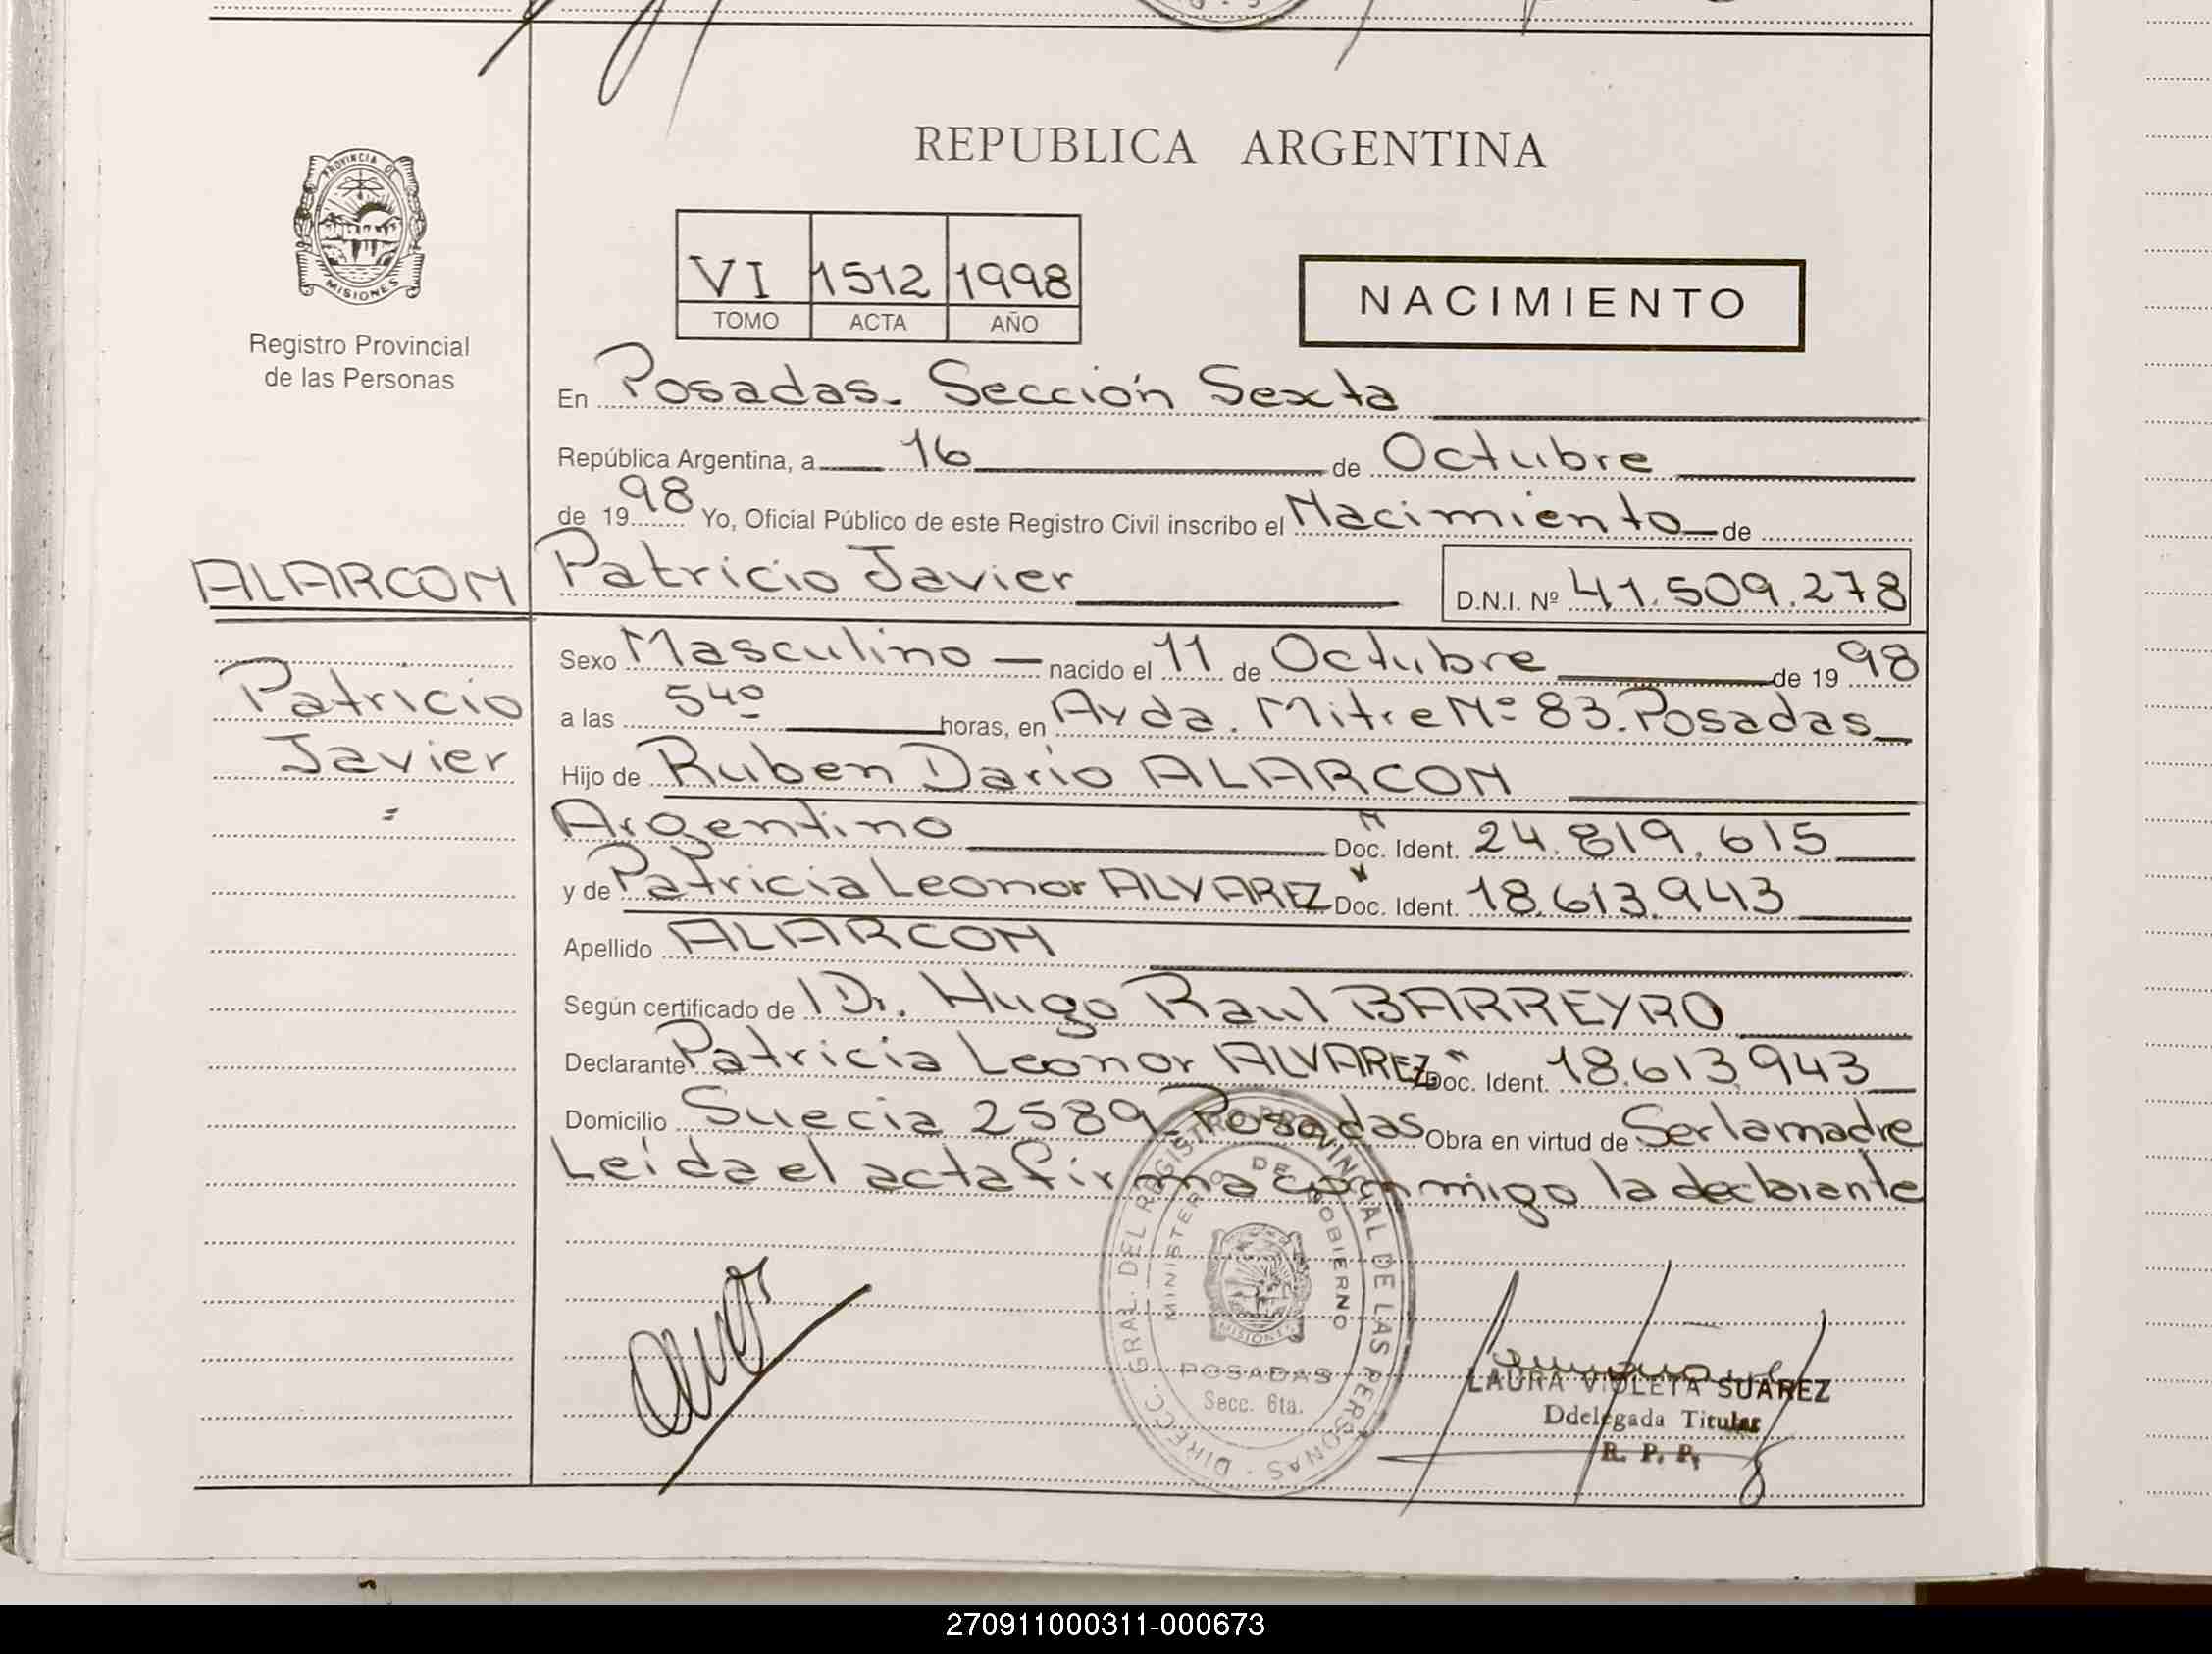 REPUBLICA ARGENTINA
PROVINCIA DE
MISIONES
Registro Provincial
de las Personas
VI 1512 1998
TOMO ACTA AÑO
NACIMIENTO
En Posadas. Sección Sexta
República Argentina, a 16 de Octubre
de 1998 Yo, Oficial Público de este Registro Civil inscribo el Nacimiento de
ALARCON
Patricio Javier D.N.I. Nº 41.509.278
Patricio
Javier
Sexo Masculino nacido el 11 de Octubre de 1998
a las 5⁴⁰ horas, en Avda. Mitre Nº 83. Posadas
Hijo de Ruben Dario ALARCON
Argentino Doc. Ident. 24.819.615
y de Patricia Leonor ALVAREZ Doc. Ident. 18.613.943
Apellido ALARCON
Según certificado de Dr. Hugo Raul BARREYRO
Declarante Patricia Leonor ALVAREZ Doc. Ident. 18.613.943
Domicilio Suecia 2589. Posadas Obra en virtud de Ser la madre
Leída el acta firma conmigo la declarante
DIRECC. GRAL. DEL REGISTRO PROVINCIAL DE LAS PERSONAS
MINISTERIO DE GOBIERNO
MISIONES
POSADAS
Secc. 6ta.
LAURA VIOLETA SUAREZ
Ddelegada Titular
R. P. P.
270911000311-000673